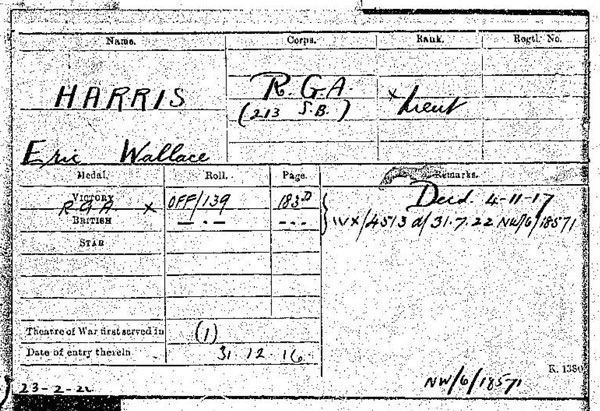 Name. Corps. Rank. Regtl. No.
HARRIS R.G.A. × Lieut
(213 S.B.)
Eric Wallace
Medal. Roll. Page. Remarks.
VICTORY OFF/139 183D Died. 4-11-17
R.G.A. ×
BRITISH — · — - - - WX/4513 d/31.7.22 NW/6/18571
STAR
Theatre of War first served in (1)
Date of entry therein 31.12.16
K. 1380
23-2-22 NW/6/18571